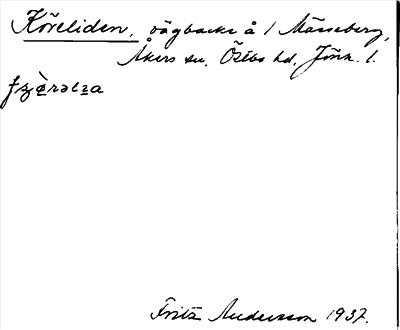 Köreliden, vägbacke å 1 Mässeberg,
Åkers sn. Östbo hd. Jönk. l.
Fritz Andersson 1937.